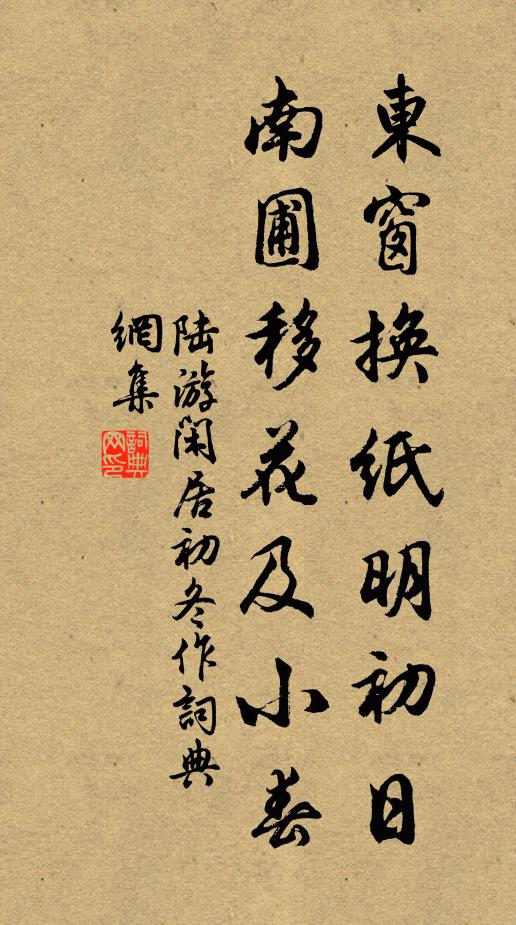 東窗換紙明初日
南圃移花及小春
陆游闲居初冬作詞典
網集
詞典
网印